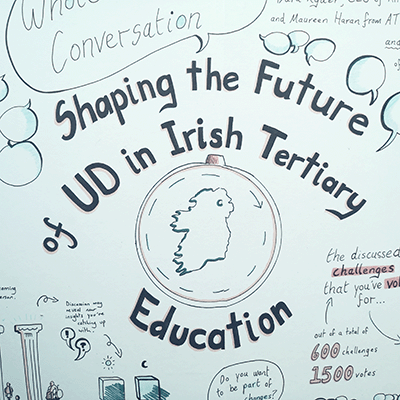 Whole
Conversation
and Maureen Haran from AT
and
of
Shaping the Future
of UD in Irish Tertiary
Education
the discussed
challenges
that you've vo
for...
out of a total of
600 challenges
1500 votes
oming
erson.
Discussion may
reveal new
insights you're
catching up
with..
Do you want
to be part of